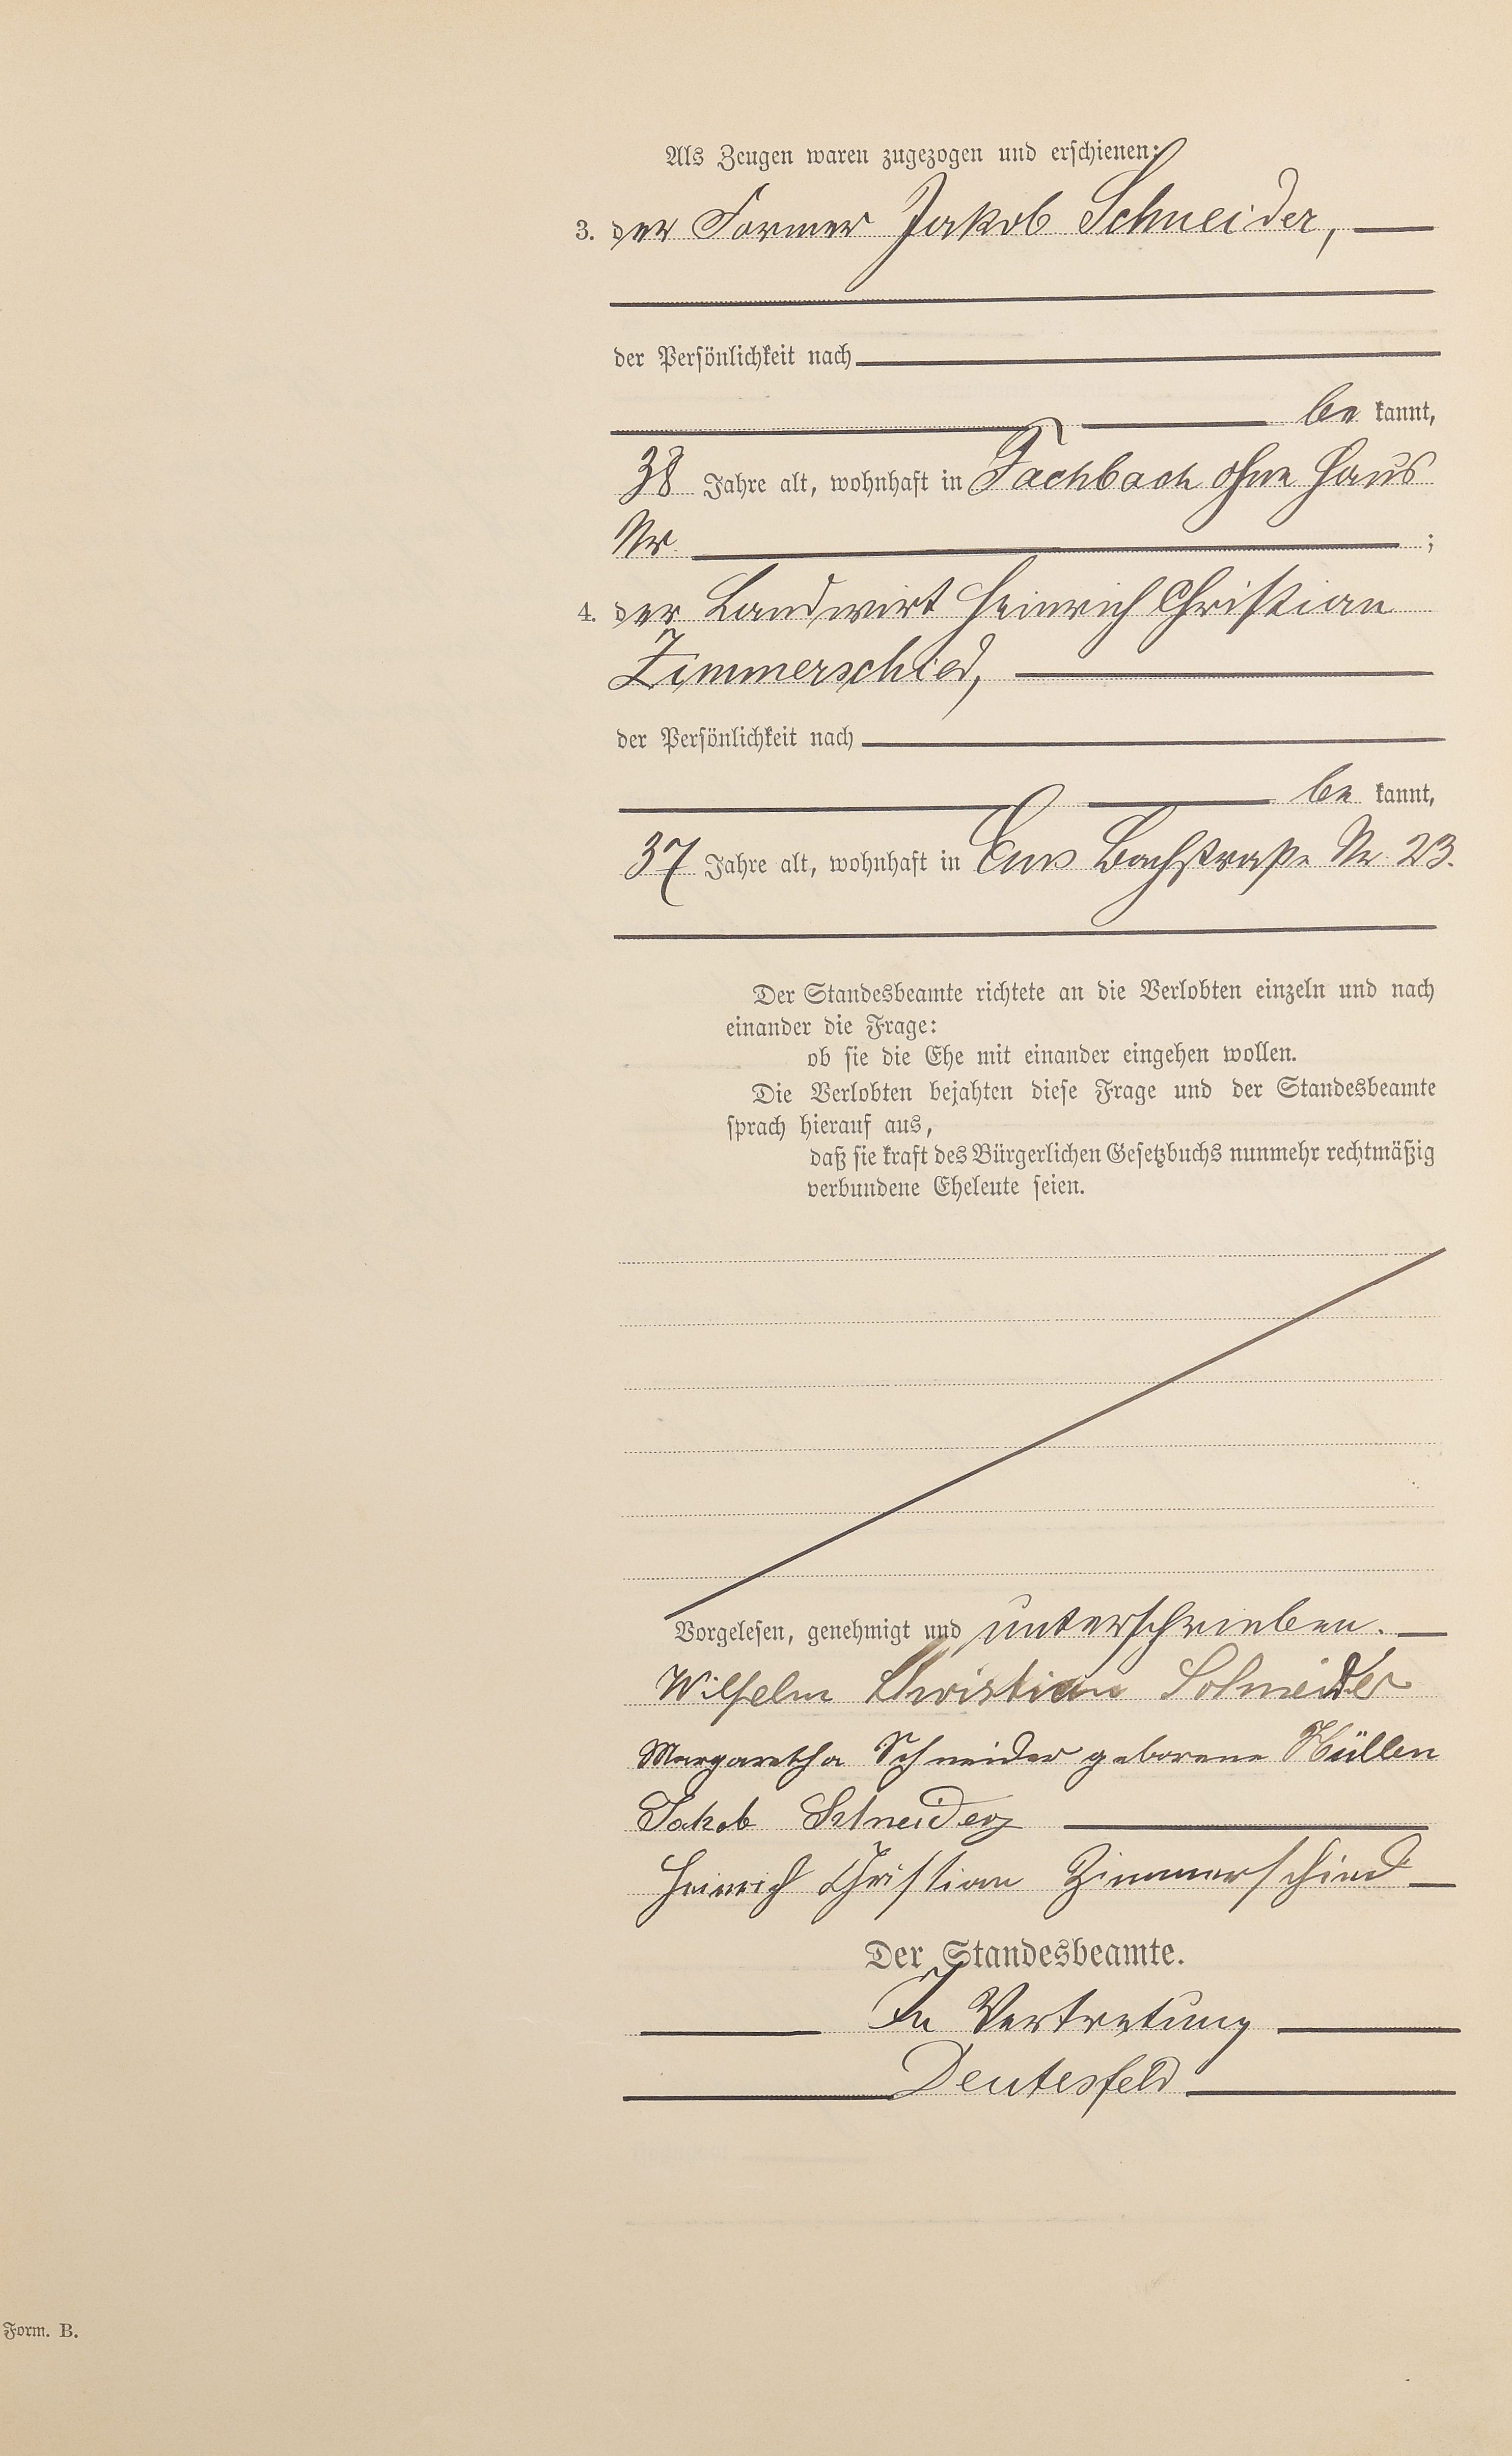 Als Zeugen waren zugezogen und erschienen:
3. der Former Jakob Schneider,
der Persönlichkeit nach
be kannt,
38 Jahre alt, wohnhaft in Fachbach ohne Haus
Nr. ;
4. der Landwirt Heinrich Christian
Zimmerschied,
der Persönlichkeit nach
be kannt,
37 Jahre alt, wohnhaft in Ems Bachstraße Nr. 23.
Der Standesbeamte richtete an die Verlobten einzeln und nach
einander die Frage:
ob sie die Ehe mit einander eingehen wollen.
Die Verlobten bejahten diese Frage und der Standesbeamte
sprach hierauf aus,
daß sie kraft des Bürgerlichen Gesetzbuchs nunmehr rechtmäßig
verbundene Eheleute seien.
Vorgelesen, genehmigt und unterschrieben.
Wilhelm Christian Schneider
Margaretha Schneider geborene Hüllen
Jakob Schneider
Heinrich Christian Zimmerschied
Der Standesbeamte.
In Vertretung
Deutesfeld
Form. B.